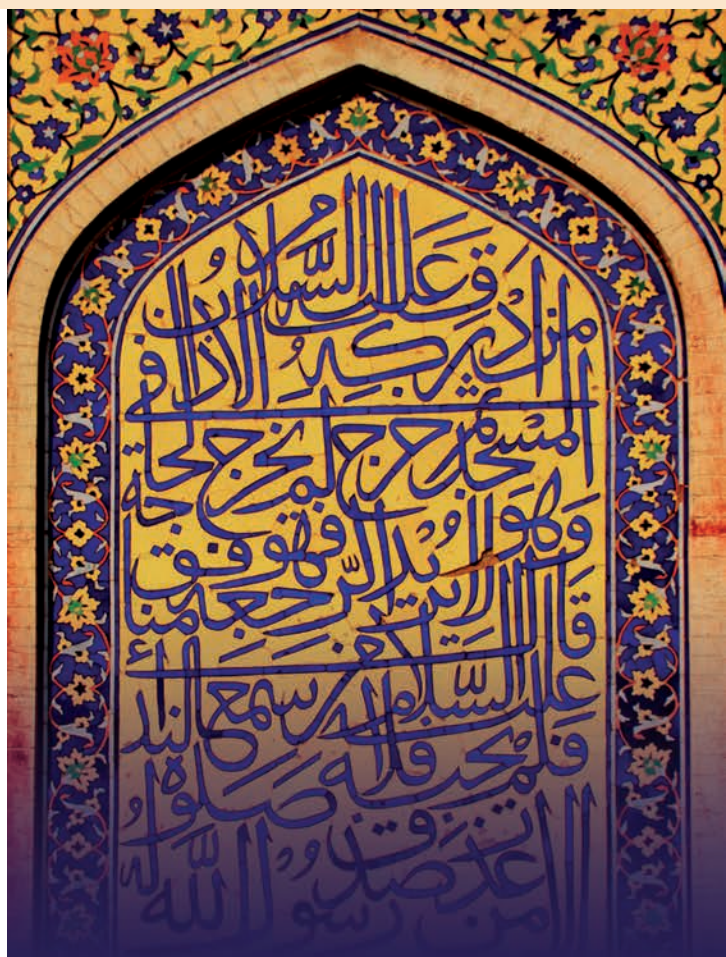 عليه السلام
من ادركه الاذان في
المسجد ثم خرج لم يخرج لحاجة
وهو لا يريد الرجعة فهو منافق
قال عليه السلام من سمع النداء
فلم يجبه فلا صلوة له
الا من عذر صدق رسول الله